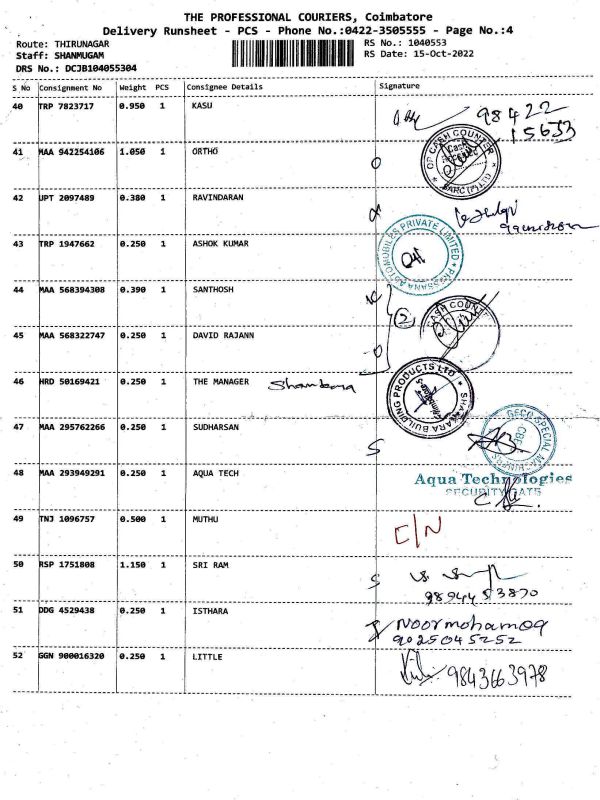 THE PROFESSIONAL COURIERS, Coimbatore
Delivery Runsheet - PCS - Phone No.:0422-3505555 - Page No.:4
Route: THIRUNAGAR
RS No.: 1040553
Staff: SHANMUGAM
RS Date: 15-Oct-2022
DRS No.: DCJB104055304
S No Consignment No Weight PCS Consignee Details Signature
40 TRP 7823717 0.950 1 KASU 98422
15633
41 MAA 942254106 1.050 1 ORTHO
CASH COUNTER
42 UPT 2097489 0.380 1 RAVINDARAN
43 TRP 1947662 0.250 1 ASHOK KUMAR
AUTOMOBILES PRIVATE LIMITED
44 MAA 568394308 0.390 1 SANTHOSH
CASH COUNTER
2
45 MAA 568322747 0.250 1 DAVID RAJANN
46 HRD 50169421 0.250 1 THE MANAGER
SHANKARA BUILDING PRODUCTS LTD
47 MAA 295762266 0.250 1 SUDHARSAN S
CBE
48 MAA 293949291 0.250 1 AQUA TECH
Aqua Technologies
SECURITY GATE
49 TNJ 1096757 0.500 1 MUTHU C/N
50 RSP 1751808 1.150 1 SRI RAM S
9894453870
51 DDG 4529438 0.250 1 ISTHARA
9025045252
52 GGN 900016320 0.250 1 LITTLE 9843663978